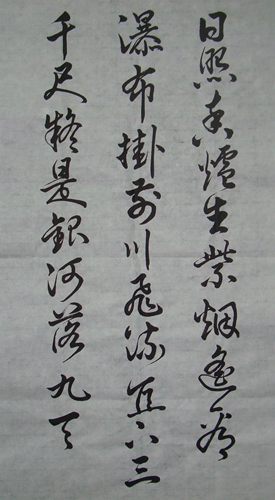 日照香炉生紫烟遥看
瀑布掛前川飛流直下三
千尺疑是銀河落九天